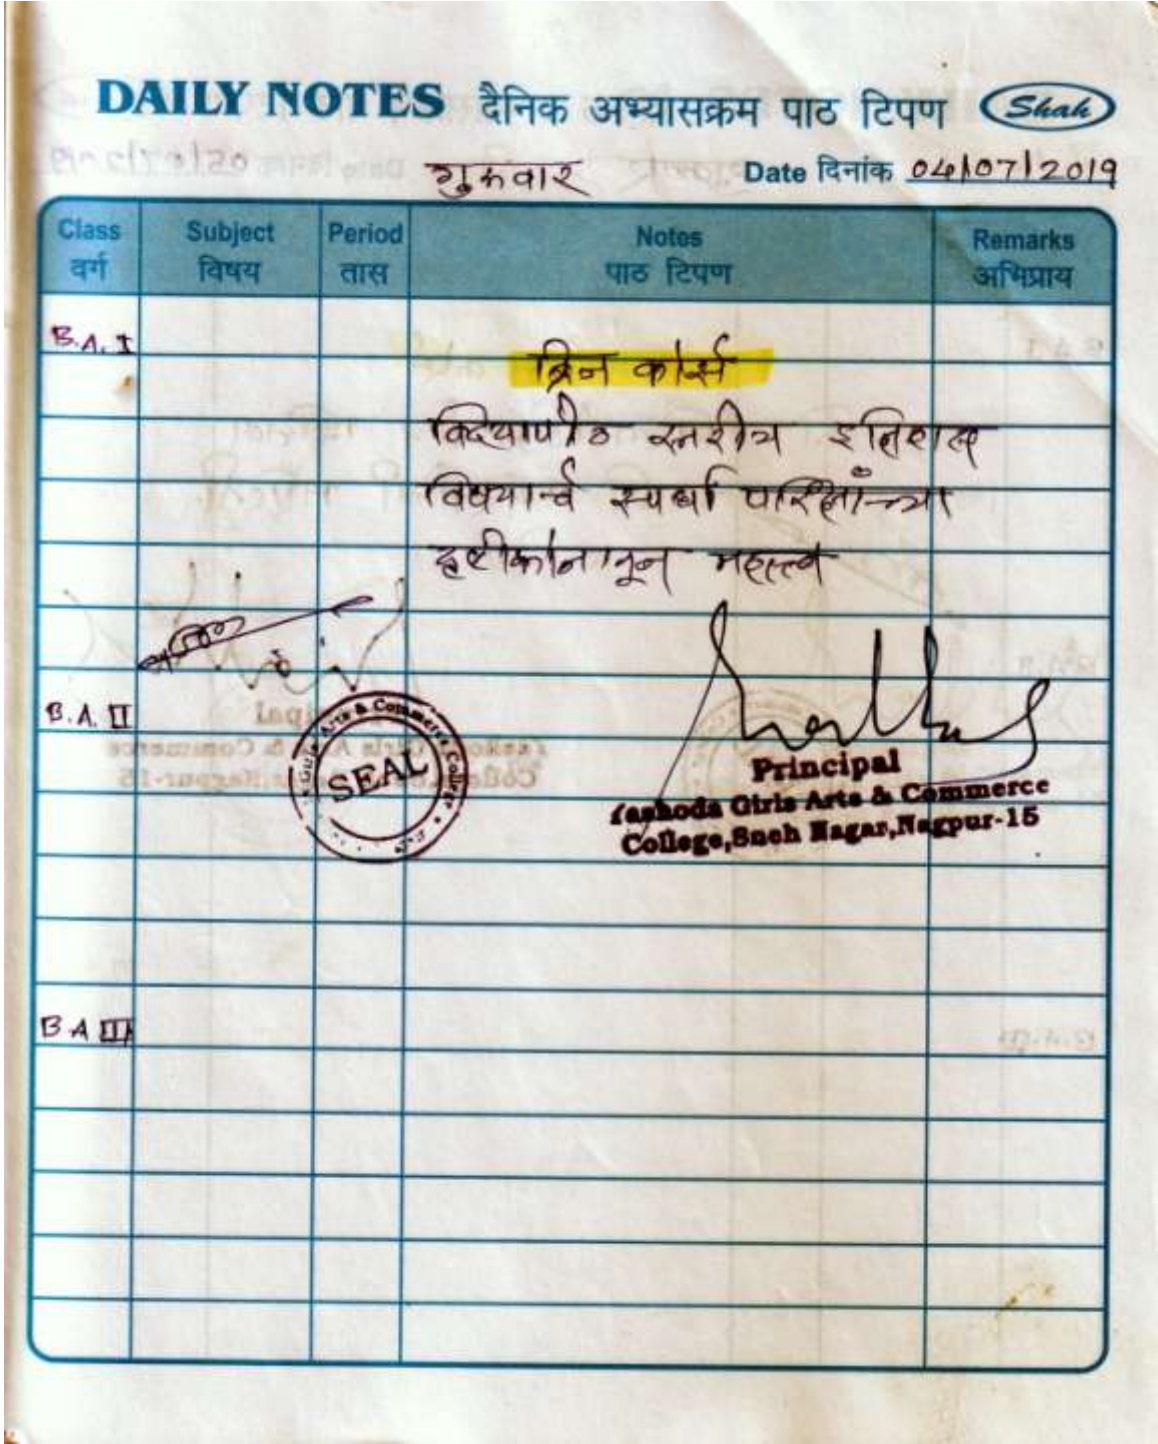 DAILY NOTES दैनिक अभ्यासक्रम पाठ टिपण Shah
गुरुवार Date दिनांक 04/07/2019
Class Subject Period Notes Remarks
वर्ग विषय तास पाठ टिपण अभिप्राय
B.A. I
ब्रिज कोर्स
विद्यापीठ स्तरीय इतिहास
विषयाचे स्पर्धा परिक्षांच्या
दृष्टीकोनातून महत्त्व
B.A. II
Girls Arts & Commerce College
SEAL
Principal
Yashoda Girls Arts & Commerce
College, Sneh Nagar, Nagpur-15
B A III